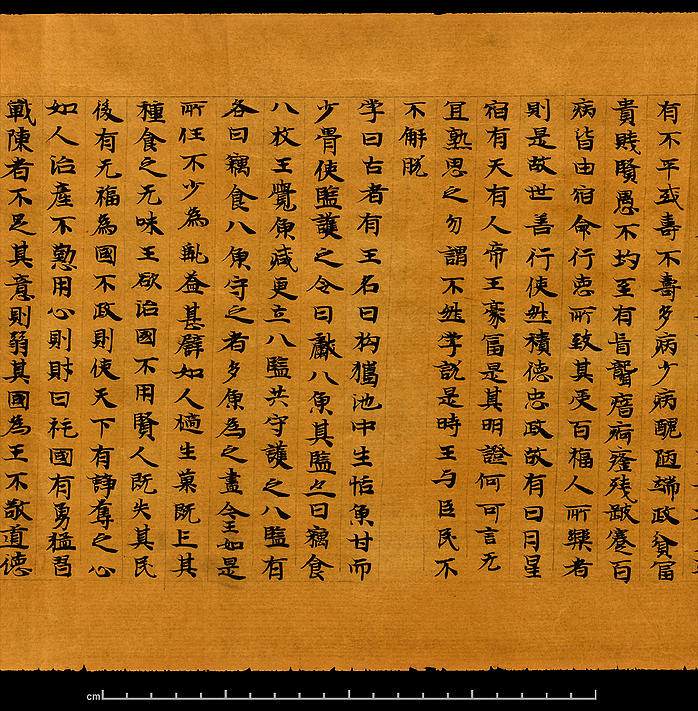 有不平或壽不壽多病少病醜陋端政貧冨
貴賤賢愚不均至有盲聾瘖瘂癃残跛蹇百
病皆由宿命行惡所致其受百福人所樂者
則是故世善行使然積德忠政故有日月星
宿有天有人帝王豪冨是其明證何可言无
宜熟思之勿謂不然孛說是時王与臣民不
不解脫
孛曰古者有王名曰狗獵池中生恬魚甘而
少骨使監護之令日獻八魚其監亦日竊食
八枚王覺魚減更立八監共守護之八監有
各日竊食八魚守之者多魚為之盡今王如是
所任不少為亂益甚譬如人擿生菓既亡其
種食之无味王欲治國不用賢人既失其民
後有无福為國不政則使天下有諍奪之心
如人治產不懃用心則財日秏國有勇猛習
戰陳者不足其意則弱其國為王不敬道德